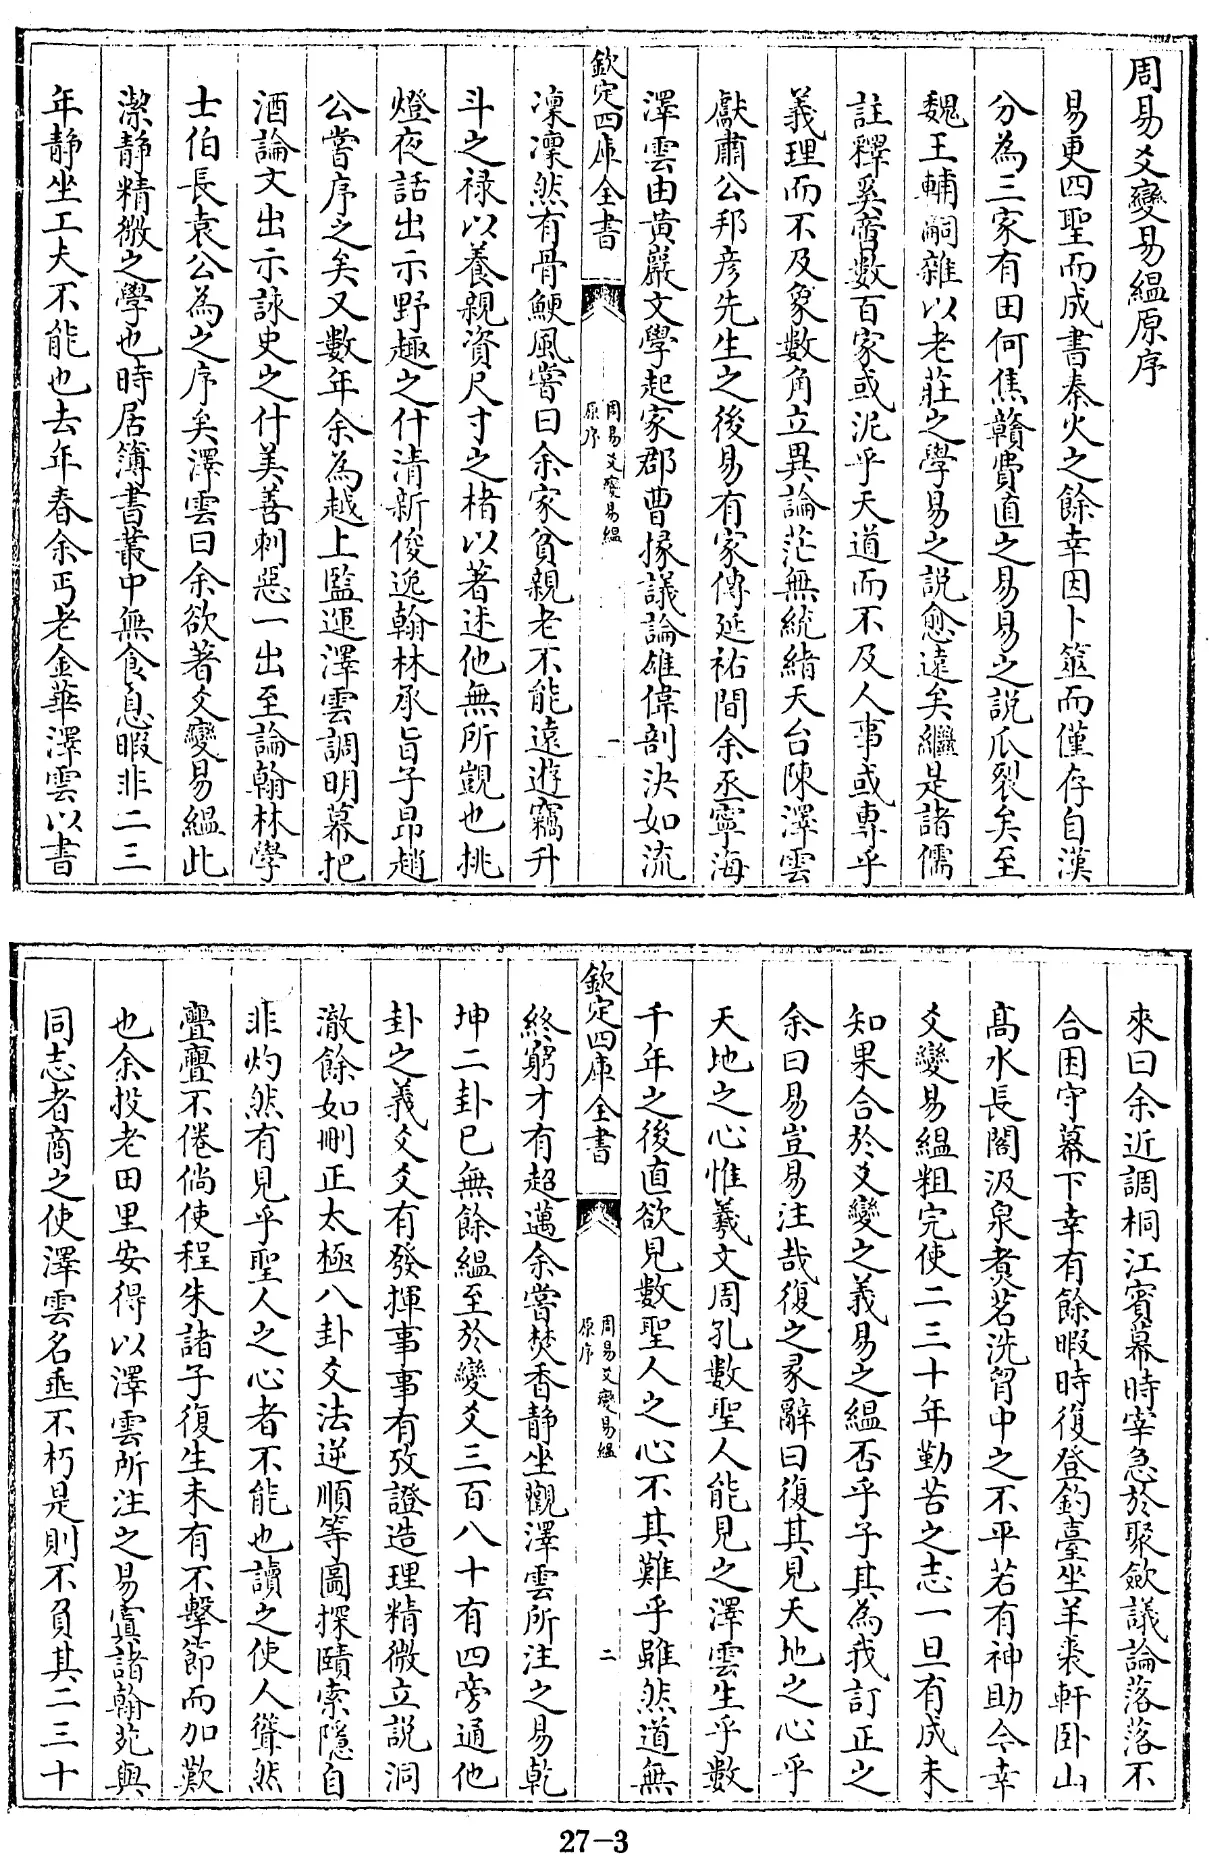 周易爻變易緼原序
易更四聖而成書秦火之餘幸因卜筮而僅存自漢
分為三家有田何焦贛費直之易易之說瓜裂矣至
魏王輔嗣雜以老莊之學易之説愈遠矣繼是諸儒
註釋奚啻數百家或泥乎天道而不及人事或專乎
義理而不及象數角立異論茫無統緒天台陳澤雲
獻肅公邦彦先生之後易有家傳延祐間余丞寧海
澤雲由黄巖文學起家郡曹掾議論雄偉剖決如流
欽定四庫全書
周易爻變易緼
原序
一
凜凜然有骨鯁風嘗曰余家貧親老不能遠遊竊升
斗之禄以養親資尺寸之楮以著述他無所覬也挑
燈夜話出示野趣之什清新俊逸翰林承旨子昻趙
公嘗序之矣又數年余為越上監運澤雲調明幕把
酒論文出示詠史之什美善刺惡一出至論翰林學
士伯長袁公為之序矣澤雲曰余欲著爻變易緼此
潔静精微之學也時居簿書叢中無食息暇非二三
年静坐工夫不能也去年春余丐老金華澤雲以書
來曰余近調桐江賓幕時宰急於聚歛議論落落不
合困守幕下幸有餘暇時復登釣臺坐羊裘軒卧山
髙水長閣汲泉煮茗洗胷中之不平若有神助今幸
爻變易緼粗完使二三十年勤苦之志一旦有成未
知果合於爻變之義易之緼否乎子其為我訂正之
余曰易豈易注哉復之彖辭曰復其見天地之心乎
天地之心惟羲文周孔數聖人能見之澤雲生乎數
千年之後直欲見數聖人之心不其難乎雖然道無
欽定四庫全書
周易爻變易緼
原序
二
終窮才有超邁余嘗焚香静坐觀澤雲所注之易乾
坤二卦已無餘緼至於變爻三百八十有四旁通他
卦之義爻爻有發揮事事有攷證造理精微立説洞
澈餘如刪正太極八卦爻法逆順等圖探賾索隱自
非灼然有見乎聖人之心者不能也讀之使人聳然
亹亹不倦倘使程朱諸子復生未有不擊節而加歎
也余投老田里安得以澤雲所注之易寘諸翰苑與
同志者商之使澤雲名垂不朽是則不負其二三十
27-3